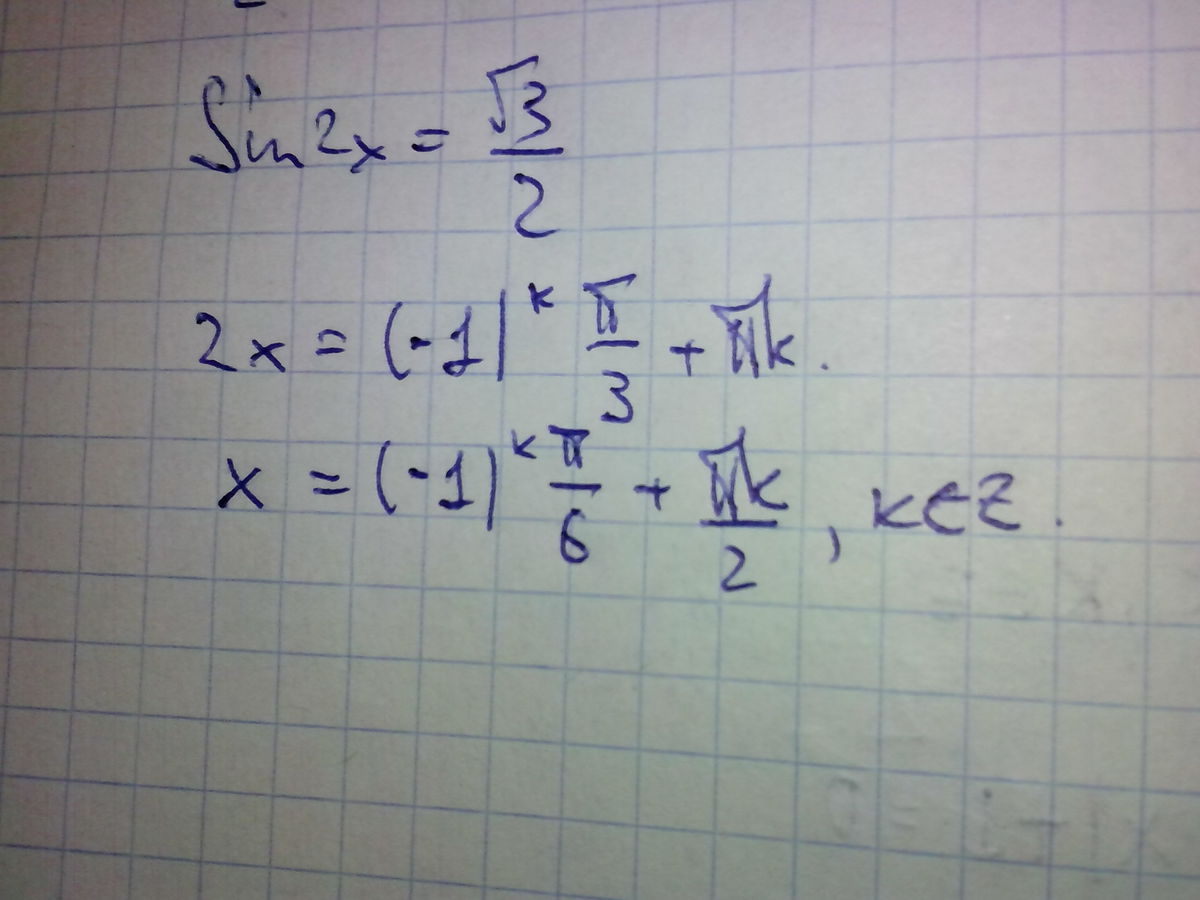 Sin 2x = √3/2
2x = (-1)^k π/3 + πk.
x = (-1)^k π/6 + πk/2, k∈Z.